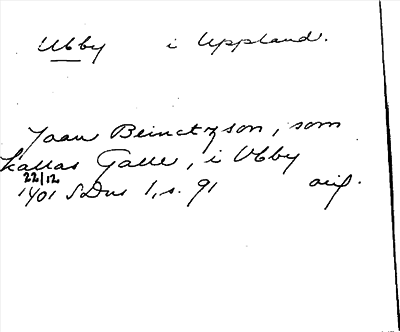 Ubby i Uppland.
Joan Beinctzson, som
kallas Galle, i Vbby
22/12
1401 SDns 1, s. 91 orig.